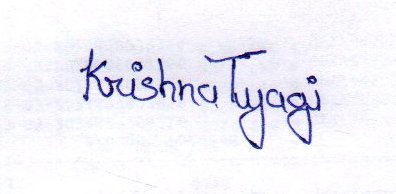 Krishna Tyagi